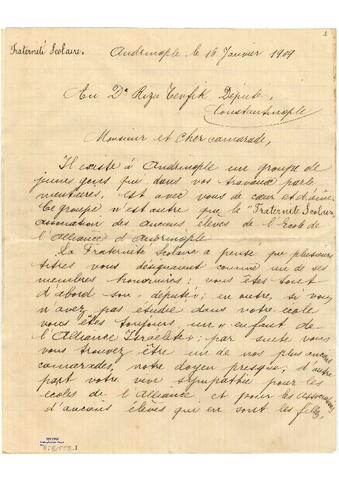 1
Fraternité Scolaire.
Andrinople le 16 Janvier 1909
Dr Riza Tevfik Député,
Constantinople
Monsieur et cher camarade,
Il existe à Andrinople un groupe de
jeunes gens qui dans vos travaux parle
mentaires, est avec vous de cœur et d'âme.
Ce groupe n'est autre que la "Fraternité Scolaire",
association des anciens élèves de l'Ecole de
l'Alliance d'Andrinople
La Fraternité Scolaire a pensé que plusieurs
titres vous désignaient comme un de ses
membres honoraires: vous êtes tout
d'abord son député; en outre, si vous
n'avez pas étudié dans notre école
vous êtes toujours un « enfant de
l'Alliance Israélite»; par suite vous
vous trouvez être un de nos plus anciens
camarades, notre doyen presque; d'autre
part votre vive sympathie pour les
écoles de l'Alliance et pour les associations
d'anciens élèves qui en sont les filles,